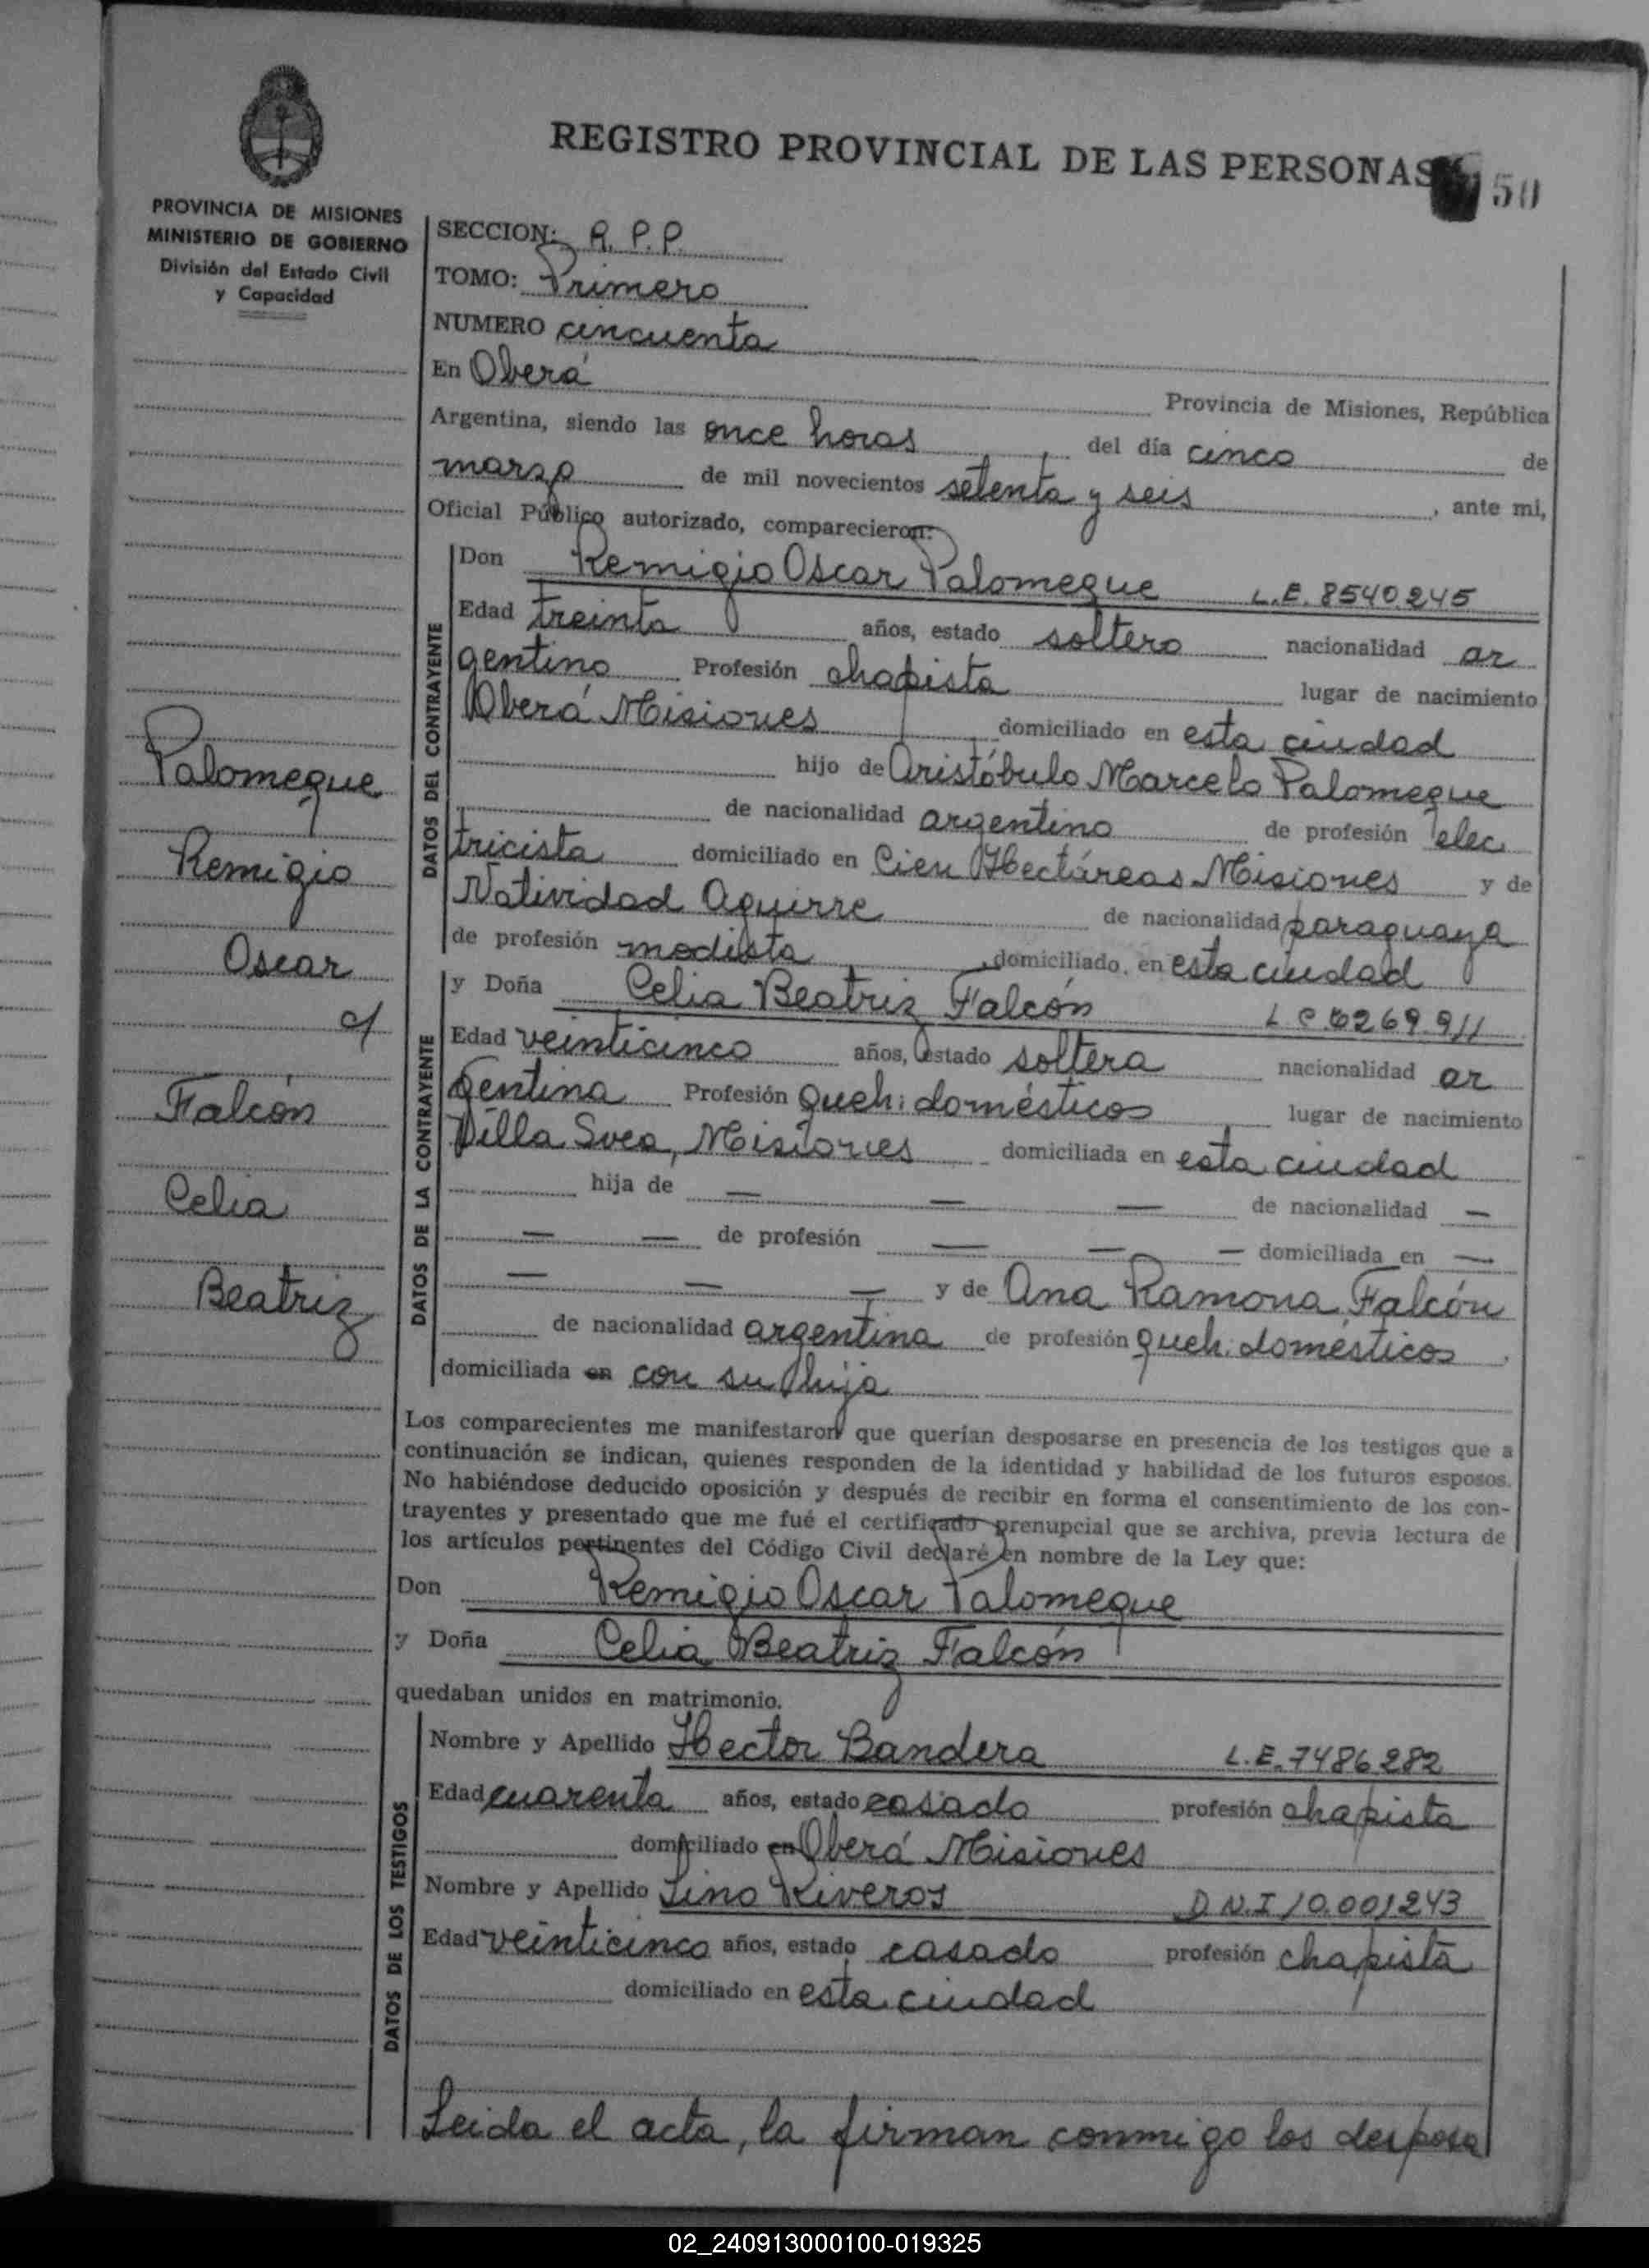 REGISTRO PROVINCIAL DE LAS PERSONAS
50
PROVINCIA DE MISIONES
MINISTERIO DE GOBIERNO
División del Estado Civil
y Capacidad
SECCION: R. P. P.
TOMO: Primero
NUMERO cincuenta
En Oberá Provincia de Misiones, República
Argentina, siendo las once horas del día cinco de
marzo de mil novecientos setenta y seis, ante mi,
Oficial Público autorizado, comparecieron:
DATOS DEL CONTRAYENTE
Don Remigio Oscar Palomeque L.E. 8540.245
Edad treinta años, estado soltero nacionalidad ar
gentino Profesión chapista lugar de nacimiento
Oberá Misiones domiciliado en esta ciudad
hijo de Aristóbulo Marcelo Palomeque
de nacionalidad argentino de profesión elec
tricista domiciliado en Cien Hectáreas Misiones y de
Natividad Aguirre de nacionalidad paraguaya
de profesión modista domiciliado en esta ciudad
DATOS DE LA CONTRAYENTE
y Doña Celia Beatriz Falcón L.C. 6269.911
Edad veinticinco años, estado soltera nacionalidad ar
gentina Profesión queh. domésticos lugar de nacimiento
Villa Svea, Misiones domiciliada en esta ciudad
hija de — — — de nacionalidad —
— — de profesión — — — domiciliada en —
— — — y de Ana Ramona Falcón
de nacionalidad argentina de profesión queh. domésticos,
domiciliada en con su hija
Palomeque
Remigio
Oscar
c/
Falcón
Celia
Beatriz
Los comparecientes me manifestaron que querían desposarse en presencia de los testigos que a
continuación se indican, quienes responden de la identidad y habilidad de los futuros esposos.
No habiéndose deducido oposición y después de recibir en forma el consentimiento de los con-
trayentes y presentado que me fué el certificado prenupcial que se archiva, previa lectura de
los artículos pertinentes del Código Civil declaré en nombre de la Ley que:
Don Remigio Oscar Palomeque
y Doña Celia Beatriz Falcón
quedaban unidos en matrimonio.
DATOS DE LOS TESTIGOS
Nombre y Apellido Hector Bandera L.E. 7486282
Edad cuarenta años, estado casado profesión chapista
domiciliado en Oberá Misiones
Nombre y Apellido Lino Riveros D.N.I 10.001243
Edad veinticinco años, estado casado profesión chapista
domiciliado en esta ciudad
Leida el acta, la firman conmigo los desposa
02_240913000100-019325